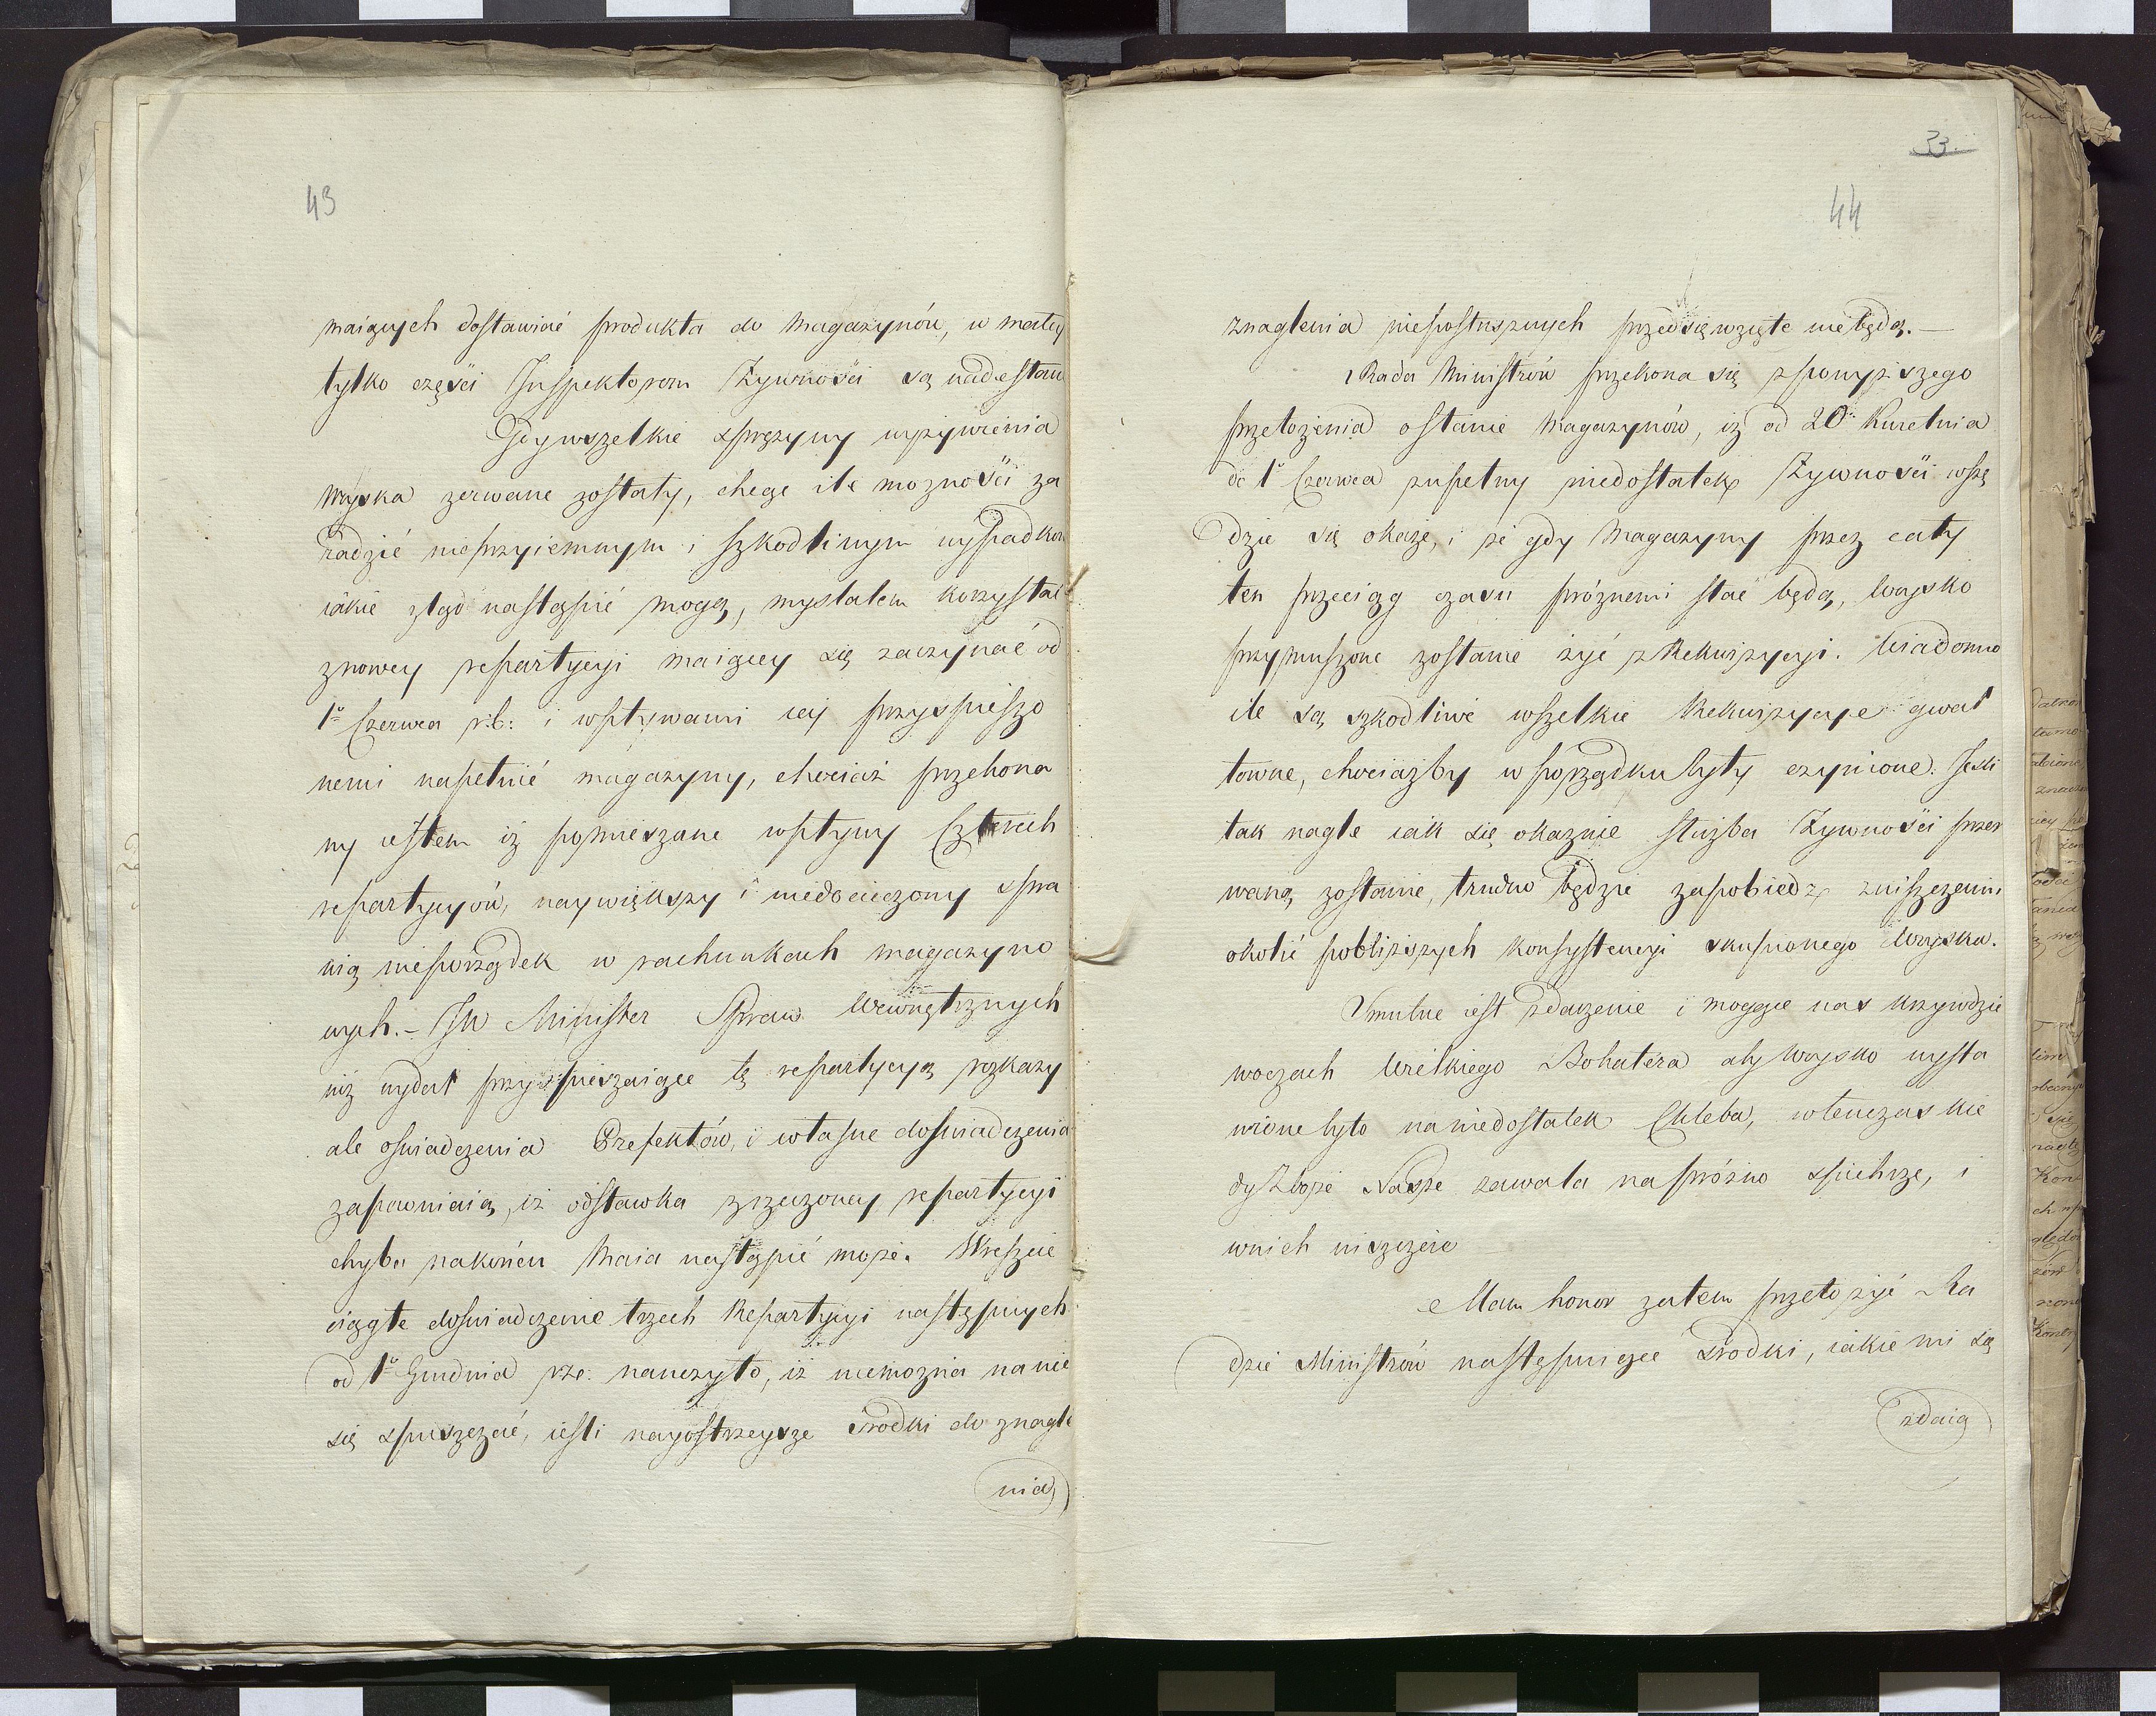 43
maiących dostawiać produkta do Magazynów, w małey
tylko części Inspektorom Żywności są nadesłan
Gdy wszelkie sprężyny wyżywienia
Woyska zerwane zostały, chcąc ile możności za
radzić nieprzyiemnym i szkodliwym wypadkom
iakie ztąd nastąpić mogą, myślałem korzystać
znowey repartycyi maiącey się zaczynać od
1º Czerwca r.b: i wpływami iey przyspieszo
nemi napełnić magazyny, chociaż przekona
ny iestem iż pomieszane wpływy Czterech
repartycyów, naywiększy i niedocieczony spra
wią nieporządek w rachunkach magazyno
wych. – JW Minister Spraw Wewnętrznych
iuż wydał przyspieszaiące tę repartycyą rozkazy
ale oświadczenia Prefektów, i własne doświadczenia
zapewniaią, iż odstawka rzeczoney repartycyi
chyba nakońcu Maia nastąpić może. Wreszcie
ciągłe doświadczenie trzech Repartycyi następnych
od 1º Grudnia r.ze: nauczyło, iż niemożna na nie
się spuszczać, ieśli nayostrzeysze środki do znagle
nia
33.
44
znaglenia nieposłusznych przedsięwzięte niebędą. –
Rada Ministrów przekona się z powyższego
przełożenia o stanie Magazynów, iż od 20º Kwietnia
do 1º Czerwca zupełny niedostatek Żywności wszę
dzie się okaże, i że gdy Magazyny przez cały
ten przeciąg czasu próżnemi stać będą, Woysko
przymuszone zostanie żyć z Rekwizycyi. Wiadomo
ile są szkodliwe wszelkie Rekwizycye gwał
towne, chociażby w porządku były czynione. Jeśli
tak nagle iak się okaznie służba Żywności przer
waną zostanie, trudno będzie zapobiedz zniszczeniu
okolic pobliższych konsystencyi skupionego Woyska.
Smutne iest zdarzenie i mogące nas krzywdzić
woczach Wielkiego Bohatera aby Woysko wysta
wione było na niedostatek Chleba, wtenczas kie
dy Zboże Nasze zawala napróżno spichrze, i
wnich niszczeie –
Mam honor zatem przełożyć Ra
dzie Ministrów następuiące środki, iakie mi się
zdaią